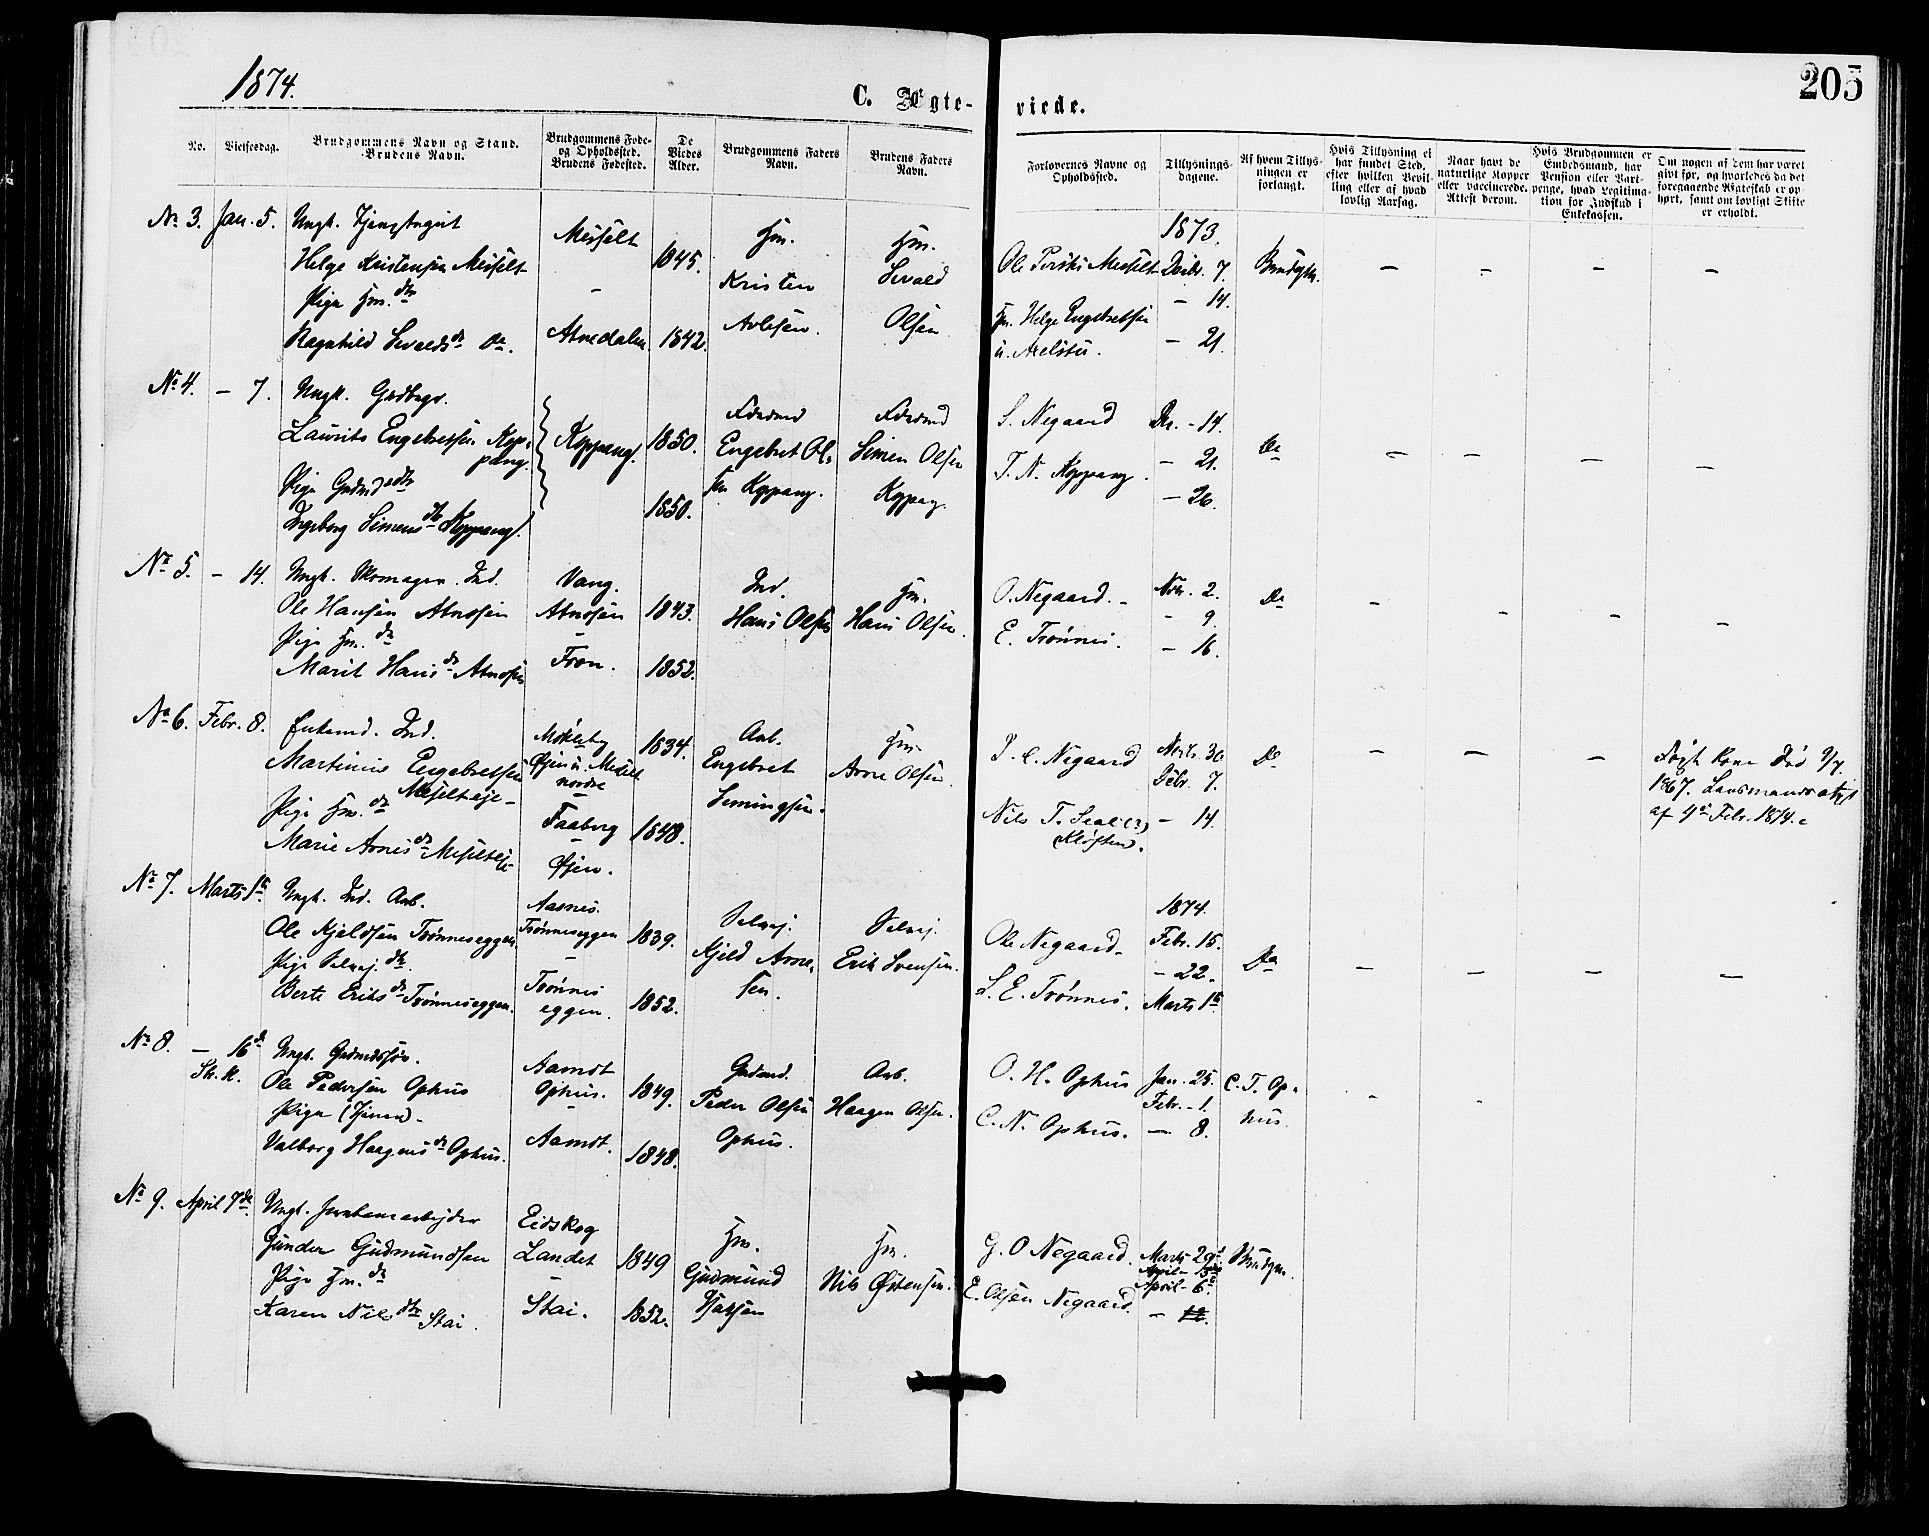 1874.
205
C. Ægte-viede.
No.
Vielsesdag.
Brudgommens Navn og Stand.
Brudens Navn.
Brudgommens Føde-
og Opholdssted.
Brudens Fødested.
De
Viedes
Alder.
Brudgommens Faders
Navn.
Brudens Faders
Navn.
Forlovernes Navne og
Opholdssted.
Tillysnings-
dagene.
Af hvem Tillys-
ningen er
forlangt.
Hvis Tillysning ei
har fundet Sted,
efter hvilken Bevil-
ling eller af hvad
lovlig Aarsag.
Naar havt de
naturlige Kopper
eller vaccinerede.
Attest derom.
Hvis Brudgommen er
Embedsmand, har
Pension eller Vart-
penge, hvad Legitima-
tion for Indskud i
Enkekassen.
Om nogen af Dem har været
givt før, og hvorledes da det
foregaaende Ægteskab er op-
hørt, samt om lovligt Skifte
er erholdt.
No 3. Jan. 5. Ungk.
Helge Kristensen Messelt
Pige Hm. dtr
Ragnhild Sevaldsdr Do.
Messelt
-
Atnedalen
1845.
1842.
Hm.
Kristen
Hm.
Sevald
Olsen
Ole Messelt
Hm. Helge Engebretsen
1873.
Decbr. 7.
- 14.
- 21.
Brudgm.
- - - -
No 4. - 7. Ungk.
Laurits Engebretsen Kop-
pang.
Pige
Ingeborg Simensdtr Koppang
Koppang
1850.
1850.
Engebret Ol-
sen Koppang.
Simen Olsen
Koppang
S. Negaard
T. N. Koppang.
Dr. - 14.
- 21.
- 26.
Do
- - - -
No 5. - 14. Ungk. Skomager. Ind.
Ole Hansen Atnosen
Pige Hm. dr
Marit Hansdr Atnosen
Vang.
Atnosen
-
Fron.
1843.
1852.
Ind.
Hans Olsen
Hm.
Hans Olsen.
O. Negaard. -
E. Trønnes.
Nov. 2.
- 9.
- 16.
Do
- - - -
No 6. Febr. 8. Enkemd. Ind.
Martinus Engebretsen
Messelteje -
Pige Hm. dr
Marie Arnesdr Messelteje
Messelt
nordre
-
Faaberg
Øjen.
1834.
1848.
Arb.
Engebret
Simingsen.
Hm.
Arne Olsen
Negaard
Nils T.
Kløften.
Novbr. 30
Decbr. 7.
- 14.
Do
- - -
Kone død
1867. Lensmandsattest
af 4de Febr. 1874.
No 7. Marts 1ste Ungk. Ind. Arb.
Ole Kjeldsen Trønneseggen
Pige Selvej. dtr.
Berte Eriksdr Trønneseggen.
Aasnes.
Trønneseggen
-
Trønnes
eggen.
1839.
1852.
Selvej.
Kjeld Arne-
sen.
Selvej.
Erik Svensen.
Ole Negaard -
S. E. Trønnes.
1874.
Febr. 15.
- 22.
Marts 1ste
Do
- - - -
No 8. - 16de
Ungk. Gaardmdssøn.
Ole Pedersen Ophus
Pige (Tjener) -
Valborg Haagensdr Ophus.
Aamot
Ophus.
-
Aamot.
1849.
1848.
Gaardmd.
Peder Olsen
Ophus.
Arb.
Haagen Olsen.
O. H. Ophus
C. N. Ophus.
Jan. 25.
Febr. - 1.
- 8.
C. T. Op-
hus.
- -
No 9. April 7de Ungk. Jernbanearbejder
Gunder Gudmundsen
Pige Hm. dr
Karen Nilsdtr Stai.
Eidskog
Landet
-
Stai.
1849
1852.
Hm.
Gudmund
Hm.
Nils Østensen.
G. O Negaard.
E. Olsen Negaard.
Marts 29de
April - 5te
April - 6te
- 12.
Brudgm.